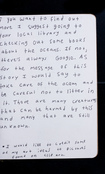 if you want to find out
more I suggest going to
your local library and
checking out some books
about the ocean. If not,
there's always Google. As
for the message of this
story I would say to
take care of the ocean and
be careful not to litter in
it. There are many creatures
that can be harmed by this
and many that are still
unknown.
I would like to